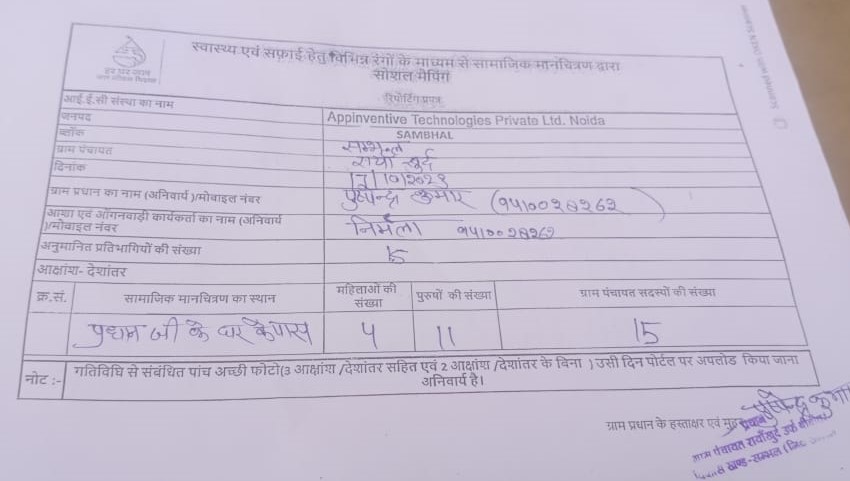 स्वास्थ्य एवं सफाई हेतु विभिन्न रंगों के माध्यम से सामाजिक मानचित्रण द्वारा
सोशल मैपिंग
रिपोर्टिंग प्रपत्र
आई.ई.सी संस्था का नाम
Appinventive Technologies Private Ltd. Noida
जनपद
SAMBHAL
ब्लॉक
सम्भल
ग्राम पंचायत
दिनांक
ग्राम प्रधान का नाम (अनिवार्य )/मोबाइल नंबर
कुमार (9410028262)
आशा एवं आँगनवाड़ी कार्यकर्ता का नाम (अनिवार्य
)/मोबाइल नंबर
निर्मला 9410028262
अनुमानित प्रतिभागियों की संख्या
15
आक्षांश- देशांतर
क्र.सं. सामाजिक मानचित्रण का स्थान महिलाओं की संख्या पुरुषों की संख्या ग्राम पंचायत सदस्यों की संख्या
प्रधान जी के घर के पास 4 11 15
नोट :- गतिविधि से संबंधित पांच अच्छी फोटो(3 आक्षांश /देशांतर सहित एवं 2 आक्षांश /देशांतर के बिना ) उसी दिन पोर्टल पर अपलोड किया जाना
अनिवार्य है।
ग्राम प्रधान के हस्ताक्षर एवं
प्रधान
ग्राम पंचायत